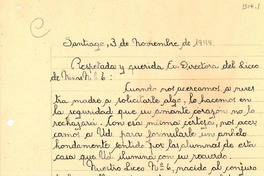 Santiago, 3 de Noviembre de 1944.
Respetada y querida Ex. Directora del Liceo
de Niñas Nº 6:
Cuando nos acercamos a nues
tra madre a solicitarle algo, lo hacemos en
la seguridad que su amante corazón no lo
rechazará. Con esa misma certeza, nos acer
camos a Ud. para formularle un anhelo
hondamente sentido por las alumnas de esta
casa que Ud. ilumina con su recuerdo.
Nuestro Liceo Nº 6, nacido al conjuro